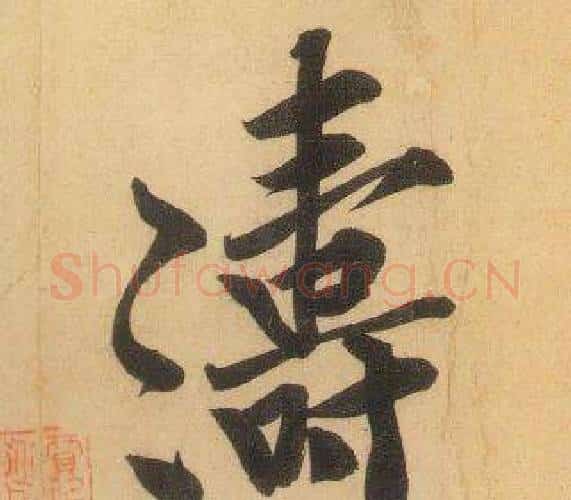 濤
Shufawang.CN